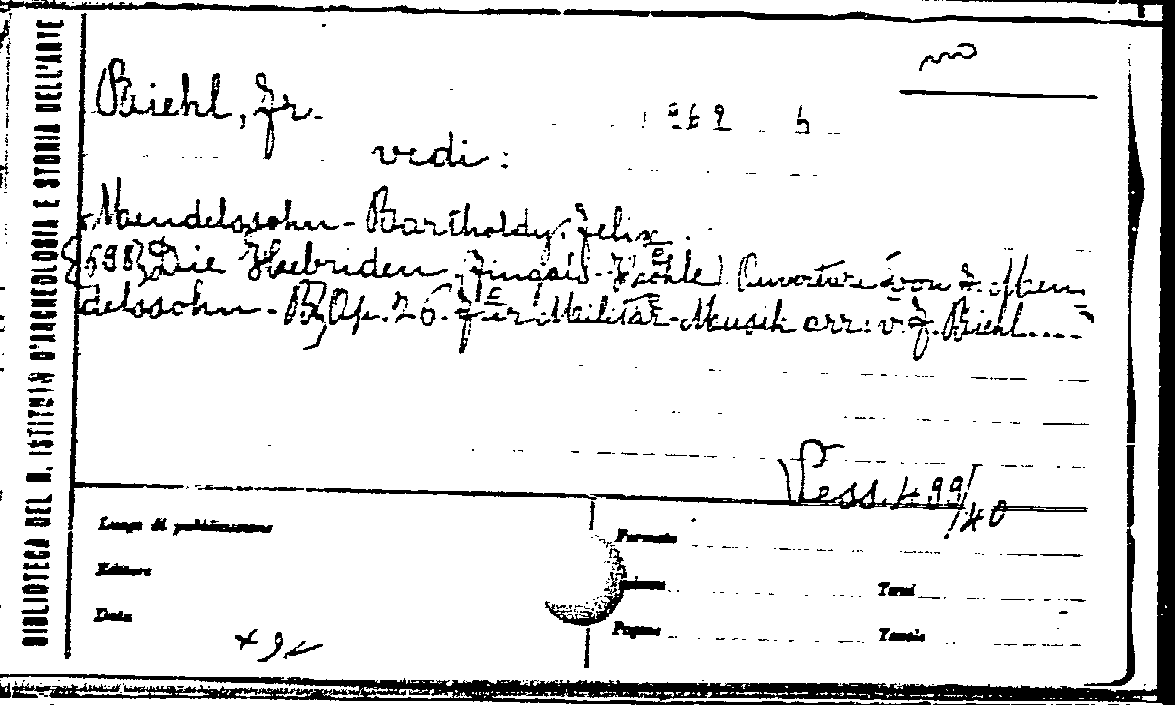 BIBLIOTECA DEL R. ISTITUTO D'ARCHEOLOGIA E STORIA DELL'ARTE
Biehl, Fr.
vedi :
Mendelssohn - Bartholdy, Felix.
Die Hebriden (Fingals-Höhle) Ouverture von F. Men
delssohn - B. Op. 26. für Militär-Musik arr: v. F. Biehl....
Vess. 499/40
Luogo di pubblicazione
Formato
Editore
Volumi
Tomi
Data
Pagine
Tavole